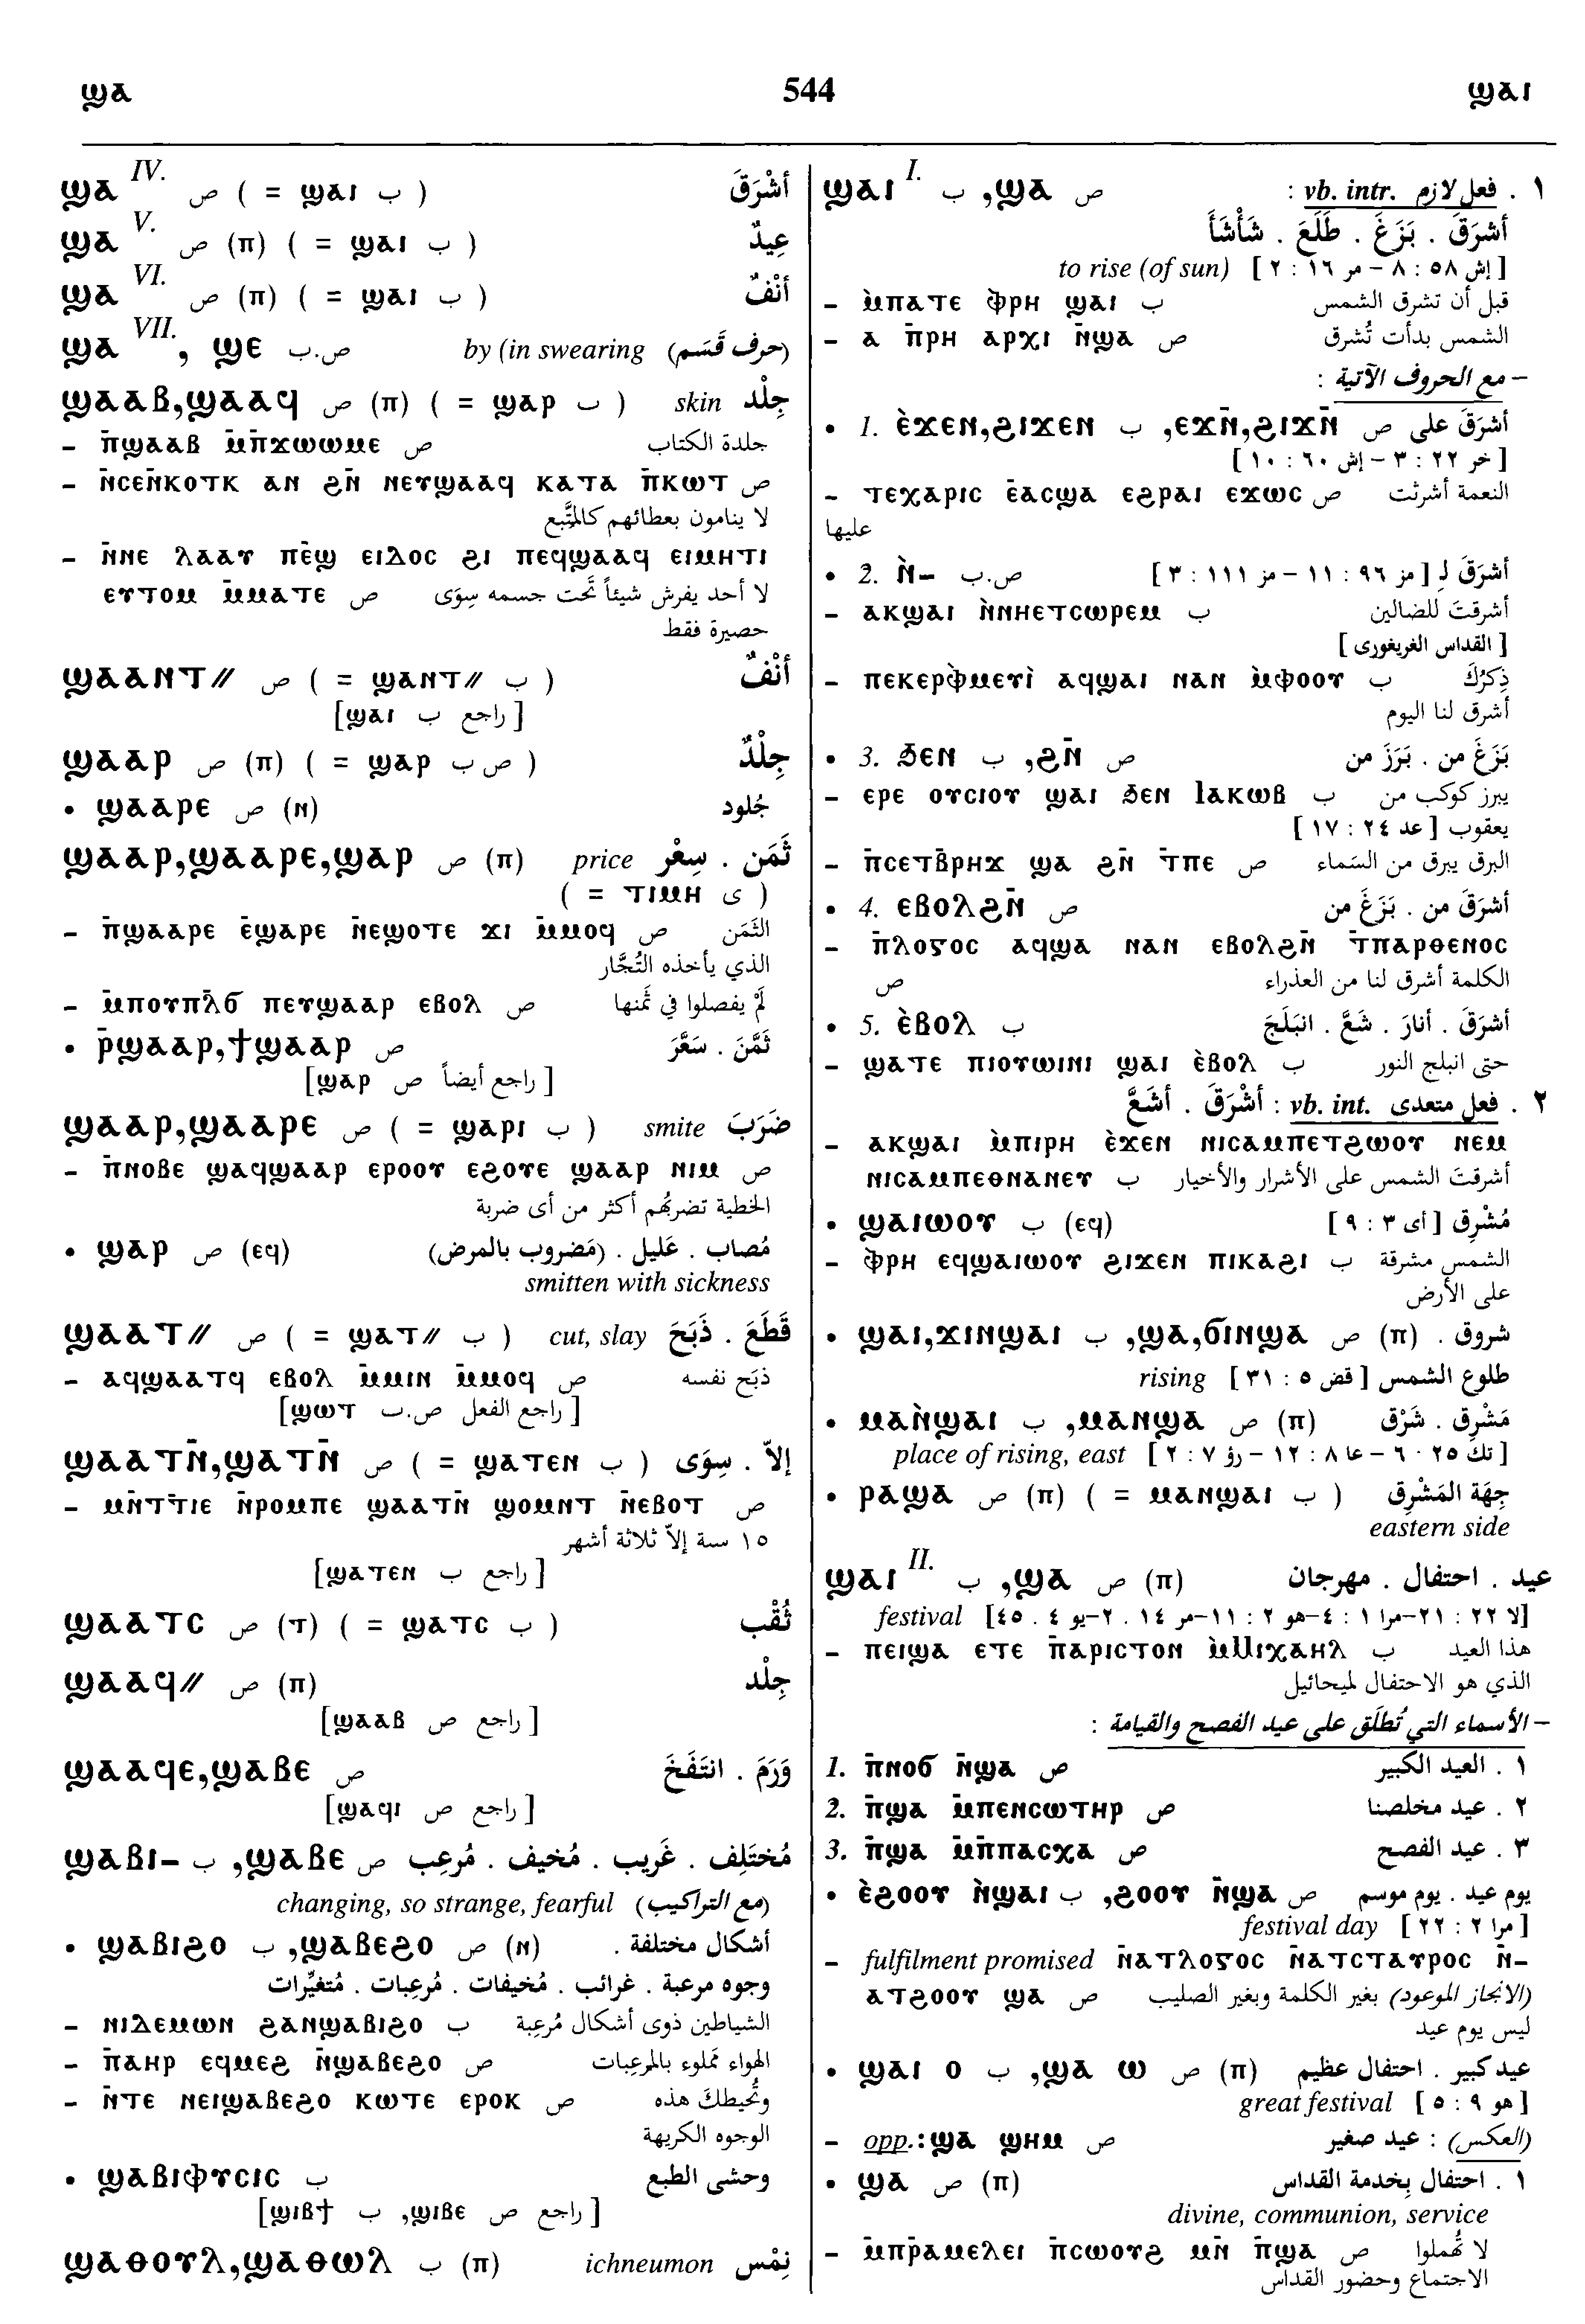 ϣⲁ 544 ϣⲁⲓ
ϣⲁ IV. ص ( = ϣⲁⲓ ب ) أشْرَقَ
ϣⲁ V. ص (ⲡ) ( = ϣⲁⲓ ب ) عِيدٌ
ϣⲁ VI. ص (ⲡ) ( = ϣⲁⲓ ب ) أنْفٌ
ϣⲁ VII. , ϣⲉ ص.ب by (in swearing (حرف قَسَم)
ϣⲁⲁⲃ,ϣⲁⲁϥ ص (ⲡ) ( = ϣⲁⲣ ب ) skin جِلْد
– ⲡ̄ϣⲁⲁⲃ ⲙ̄ⲡ̄ϫⲱⲱⲙⲉ ص جلدة الكتاب
– ⲛ̄ⲥⲉⲛ̄ⲕⲟⲧⲕ ⲁⲛ ϩⲛ̄ ⲛⲉⲩϣⲁⲁϥ ⲕⲁⲧⲁ ⲡ̄ⲕⲱⲧ ص
لا ينامون بعطائهم كالمتَّبع
– ⲛ̄ⲛⲉ ⲗⲁⲁⲩ ⲡⲉ̄ϣ ⲉⲓⲇⲟⲥ ϩⲓ ⲡⲉϥϣⲁⲁϥ ⲉⲓⲙⲏⲧⲓ
ⲉⲩⲧⲟⲙ ⲙ̄ⲙⲁⲧⲉ ص لا أحد يفرش شيئاً تحت جسمه سِوَى
حصيرة فقط
ϣⲁⲁⲛⲧ// ص ( = ϣⲁⲛⲧ// ب ) أنْفٌ
[راجع ب ϣⲁⲓ]
ϣⲁⲁⲣ ص (ⲡ) ( = ϣⲁⲣ ص ب ) جِلْدٌ
• ϣⲁⲁⲣⲉ ص (ⲛ) جُلود
ϣⲁⲁⲣ,ϣⲁⲁⲣⲉ,ϣⲁⲣ ص (ⲡ) price ثَمَن . سِعْر
( = ⲧⲓⲙⲏ ى )
– ⲡ̄ϣⲁⲁⲣⲉ ⲉ̄ϣⲁⲣⲉ ⲛ̄ⲉϣⲟⲧⲉ ϫⲓ ⲙ̄ⲙⲟϥ ص الثَمَن
الذي يأخذه التُجَّار
– ⲙ̄ⲡⲟⲩⲡⲗ̄ϭ ⲡⲉⲩϣⲁⲁⲣ ⲉⲃⲟⲗ ص لَمْ يفصلوا في ثمنها
• ⲣ̄ϣⲁⲁⲣ,ϯϣⲁⲁⲣ ص ثَمَّنَ . سَعَّرَ
[راجع أيضاً ص ϣⲁⲣ]
ϣⲁⲁⲣ,ϣⲁⲁⲣⲉ ص ( = ϣⲁⲣⲓ ب ) smite ضَرَبَ
– ⲡ̄ⲛⲟⲃⲉ ϣⲁϥϣⲁⲁⲣ ⲉⲣⲟⲟⲩ ⲉϩⲟⲧⲉ ϣⲁⲁⲣ ⲛⲓⲙ ص
الخطية تضربُهم أكثر من أى ضربة
• ϣⲁⲣ ص (ⲉϥ) مُصاب . عَليل . (مَضروب بالمرض)
smitten with sickness
ϣⲁⲁⲧ// ص ( = ϣⲁⲧ// ب ) cut, slay قَطَعَ . ذَبَحَ
– ⲁϥϣⲁⲁⲧϥ ⲉⲃⲟⲗ ⲙ̄ⲙⲓⲛ ⲙ̄ⲙⲟϥ ص ذبَح نفسه
[راجع الفعل ص.ب ϣⲱⲧ]
ϣⲁⲁⲧⲛ̄,ϣⲁⲧⲛ̄ ص ( = ϣⲁⲧⲉⲛ ب ) إلاّ . سِوَى
– ⲙⲛ̄ⲧ̄ⲧⲓⲉ ⲛ̄ⲣⲟⲙⲡⲉ ϣⲁⲁⲧⲛ̄ ϣⲟⲙⲛⲧ ⲛ̄ⲉⲃⲟⲧ ص
١٥ سنة إلاّ ثلاثة أشهر
[راجع ب ϣⲁⲧⲉⲛ]
ϣⲁⲁⲧⲥ ص (ⲧ) ( = ϣⲁⲧⲥ ب ) ثُقْب
ϣⲁⲁϥ// ص (ⲡ) جِلْد
[راجع ص ϣⲁⲁⲃ]
ϣⲁⲁϥⲉ,ϣⲁⲃⲉ ص وَرَمَ . انتَفَخَ
[راجع ص ϣⲁϥⲓ]
ϣⲁⲃⲓ– ب ,ϣⲁⲃⲉ ص مُختَلِف . غَرِيب . مُخيف . مُرعِب
changing, so strange, fearful (مع التراكيب)
• ϣⲁⲃⲓϩⲟ ب ,ϣⲁⲃⲉϩⲟ ص (ⲛ) أشكال مختلفة .
وجوه مرعبة . غرائب . مُخيفات . مُرعِبات . مُتغيِّرات
– ⲛⲓⲇⲉⲙⲱⲛ ϩⲁⲛϣⲁⲃⲓϩⲟ ب الشياطين ذوى أشكال مُرعِبة
– ⲡ̄ⲁⲏⲣ ⲉϥⲙⲉϩ ⲛ̄ϣⲁⲃⲉϩⲟ ص الهواء مملوء بالمرعبات
– ⲛ̄ⲧⲉ ⲛⲉⲓϣⲁⲃⲉϩⲟ ⲕⲱⲧⲉ ⲉⲣⲟⲕ ص وتُحيطكَ هذه
الوجوه الكريهة
• ϣⲁⲃⲓⲫⲩⲥⲓⲥ ب وحشى الطبع
[راجع ص ϣⲓⲃⲉ, ب ϣⲓⲃϯ]
ϣⲁⲑⲟⲩⲗ,ϣⲁⲑⲱⲗ ب (ⲡ) ichneumon نِمْس
ϣⲁⲓ I. ب ,ϣⲁ ص ١ . فعل لازم vb. intr. :
أشرَقَ . بَزَغَ . طَلَعَ . شَأْشَأَ
to rise (of sun) [إش ٥٨ : ٨ – مر ١٦ : ٢]
– ⲙ̀ⲡⲁⲧⲉ ⲫ̀ⲣⲏ ϣⲁⲓ ب قبل أن تشرق الشمس
– ⲁ ⲡ̄ⲣⲏ ⲁⲣⲭⲓ ⲛ̄ϣⲁ ص الشمس بدأت تُشرق
– مع الحروف الآتية :
• 1. ⲉ̀ϫⲉⲛ,ϩⲓϫⲉⲛ ب ,ⲉϫⲛ̄,ϩⲓϫⲛ̄ ص أشرَقَ على
[خر ٢٢ : ٣ – إش ٦٠ : ١٠]
– ⲧⲉⲭⲁⲣⲓⲥ ⲉ̄ⲁⲥϣⲁ ⲉϩⲣⲁⲓ ⲉϫⲱⲥ ص النعمة أشرقت
عليها
• 2. ⲛ̀– ص.ب أشرَقَ لِـ [مز ٩٦ : ١١ – مز ١١١ : ٣]
– ⲁⲕϣⲁⲓ ⲛ̀ⲛⲏⲉⲧⲥⲱⲣⲉⲙ ب أشرقتَ للضالين
[القداس الغريغورى]
– ⲡⲉⲕⲉⲣⲫ̀ⲙⲉⲩⲓ̀ ⲁϥϣⲁⲓ ⲛⲁⲛ ⲙ̀ⲫⲟⲟⲩ ب ذِكرُكَ
أشرق لنا اليوم
• 3. ϧⲉⲛ ب ,ϩⲛ̄ ص بَزَغَ من . بَرَزَ من
– ⲉⲣⲉ ⲟⲩⲥⲓⲟⲩ ϣⲁⲓ ϧⲉⲛ Ⲓⲁⲕⲱⲃ ب يبرز كوكب من
يعقوب [عد ٢٤ : ١٧]
– ⲡ̄ⲥⲉⲧⲃ̄ⲣⲏϫ ϣⲁ ϩⲛ̄ ⲧ̄ⲡⲉ ص البرق يبرق من السماء
• 4. ⲉⲃⲟⲗϩⲛ̄ ص أشرَقَ من . بَزَغَ من
– ⲡ̄ⲗⲟⲅⲟⲥ ⲁϥϣⲁ ⲛⲁⲛ ⲉⲃⲟⲗϩⲛ̄ ⲧ̄ⲡⲁⲣⲑⲉⲛⲟⲥ
ص الكلمة أشرق لنا من العذراء
• 5. ⲉ̀ⲃⲟⲗ ب أشرَقَ . أنارَ . شَعَّ . انبَلَجَ
– ϣⲁⲧⲉ ⲡⲓⲟⲩⲱⲓⲛⲓ ϣⲁⲓ ⲉ̀ⲃⲟⲗ ب حتى انبلج النور
٢ . فعل متعدى vb. int. : أشْرَقَ . أشَعَّ
– ⲁⲕϣⲁⲓ ⲙ̀ⲡⲓⲣⲏ ⲉ̀ϫⲉⲛ ⲛⲓⲥⲁⲙⲡⲉⲧϩⲱⲟⲩ ⲛⲉⲙ
ⲛⲓⲥⲁⲙⲡⲉⲑⲛⲁⲛⲉⲩ ب أشرقتَ الشمس على الأشرار والأخيار
• ϣⲁⲓⲱⲟⲩ ب (ⲉϥ) مُشْرِق [أى ٣ : ٩]
– ⲫ̀ⲣⲏ ⲉϥϣⲁⲓⲱⲟⲩ ϩⲓϫⲉⲛ ⲡⲓⲕⲁϩⲓ ب الشمس مشرقة
على الأرض
• ϣⲁⲓ,ϫⲓⲛϣⲁⲓ ب ,ϣⲁ,ϭⲓⲛϣⲁ ص (ⲡ) شروق .
rising طلوع الشمس [قض ٥ : ٣١]
• ⲙⲁⲛ̀ϣⲁⲓ ب ,ⲙⲁⲛϣⲁ ص (ⲡ) مَشْرِق . شَرْق
place of rising, east [تك ٢٥ : ٦ – عا ٨ : ١٢ – رؤ ٧ : ٢]
• ⲣⲁϣⲁ ص (ⲡ) ( = ⲙⲁⲛϣⲁⲓ ب ) جِهَة المَشْرِق
eastern side
ϣⲁⲓ II. ب ,ϣⲁ ص (ⲡ) عيد . احتفال . مهرجان
festival [لا ٢٢ : ٢١–مرا ١ : ٤–هو ٢ : ١١–مر ١٤ . ٢–يو ٤ . ٤٥]
– ⲡⲉⲓϣⲁ ⲉⲧⲉ ⲡ̄ⲁⲣⲓⲥⲧⲟⲛ ⲙ̀Ⲙⲓⲭⲁⲏⲗ ب هذا العيد
الذي هو الاحتفال لميخائيل
– الأسماء التي تُطلَق على عيد الفصح والقيامة :
1. ⲡ̄ⲛⲟϭ ⲛ̄ϣⲁ ص ١ . العيد الكبير
2. ⲡ̄ϣⲁ ⲙ̄ⲡⲉⲛⲥⲱⲧⲏⲣ ص ٢ . عيد مخلصنا
3. ⲡ̄ϣⲁ ⲙ̄ⲡ̄ⲡⲁⲥⲭⲁ ص ٣ . عيد الفصح
• ⲉ̀ϩⲟⲟⲩ ⲛ̀ϣⲁⲓ ب ,ϩⲟⲟⲩ ⲛ̄ϣⲁ ص يوم عيد . يوم موسم
festival day [مرا ٢ : ٢٢]
– fulfilment promised ⲛ̄ⲁⲧⲗⲟⲅⲟⲥ ⲛ̄ⲁⲧⲥⲧⲁⲩⲣⲟⲥ ⲛ̄–
ⲁⲧϩⲟⲟⲩ ϣⲁ ص (الانجاز الموعود) بغير الكلمة وبغير الصليب
ليس يوم عيد
• ϣⲁⲓ ⲟ ب ,ϣⲁ ⲱ ص (ⲡ) عيد كبير . احتفال عظيم
great festival [هو ٩ : ٥]
– opp.:ϣⲁ ϣⲏⲙ ص (العكس) : عيد صغير
• ϣⲁ ص (ⲡ) ١ . احتفال بِخدمة القداس
divine, communion, service
– ⲙ̄ⲡⲣ̄ⲁⲙⲉⲗⲉⲓ ⲛ̄ⲥⲱⲟⲩϩ ⲙⲛ̄ ⲡ̄ϣⲁ ص لا تُهملوا
الاجتماع وحضور القداس